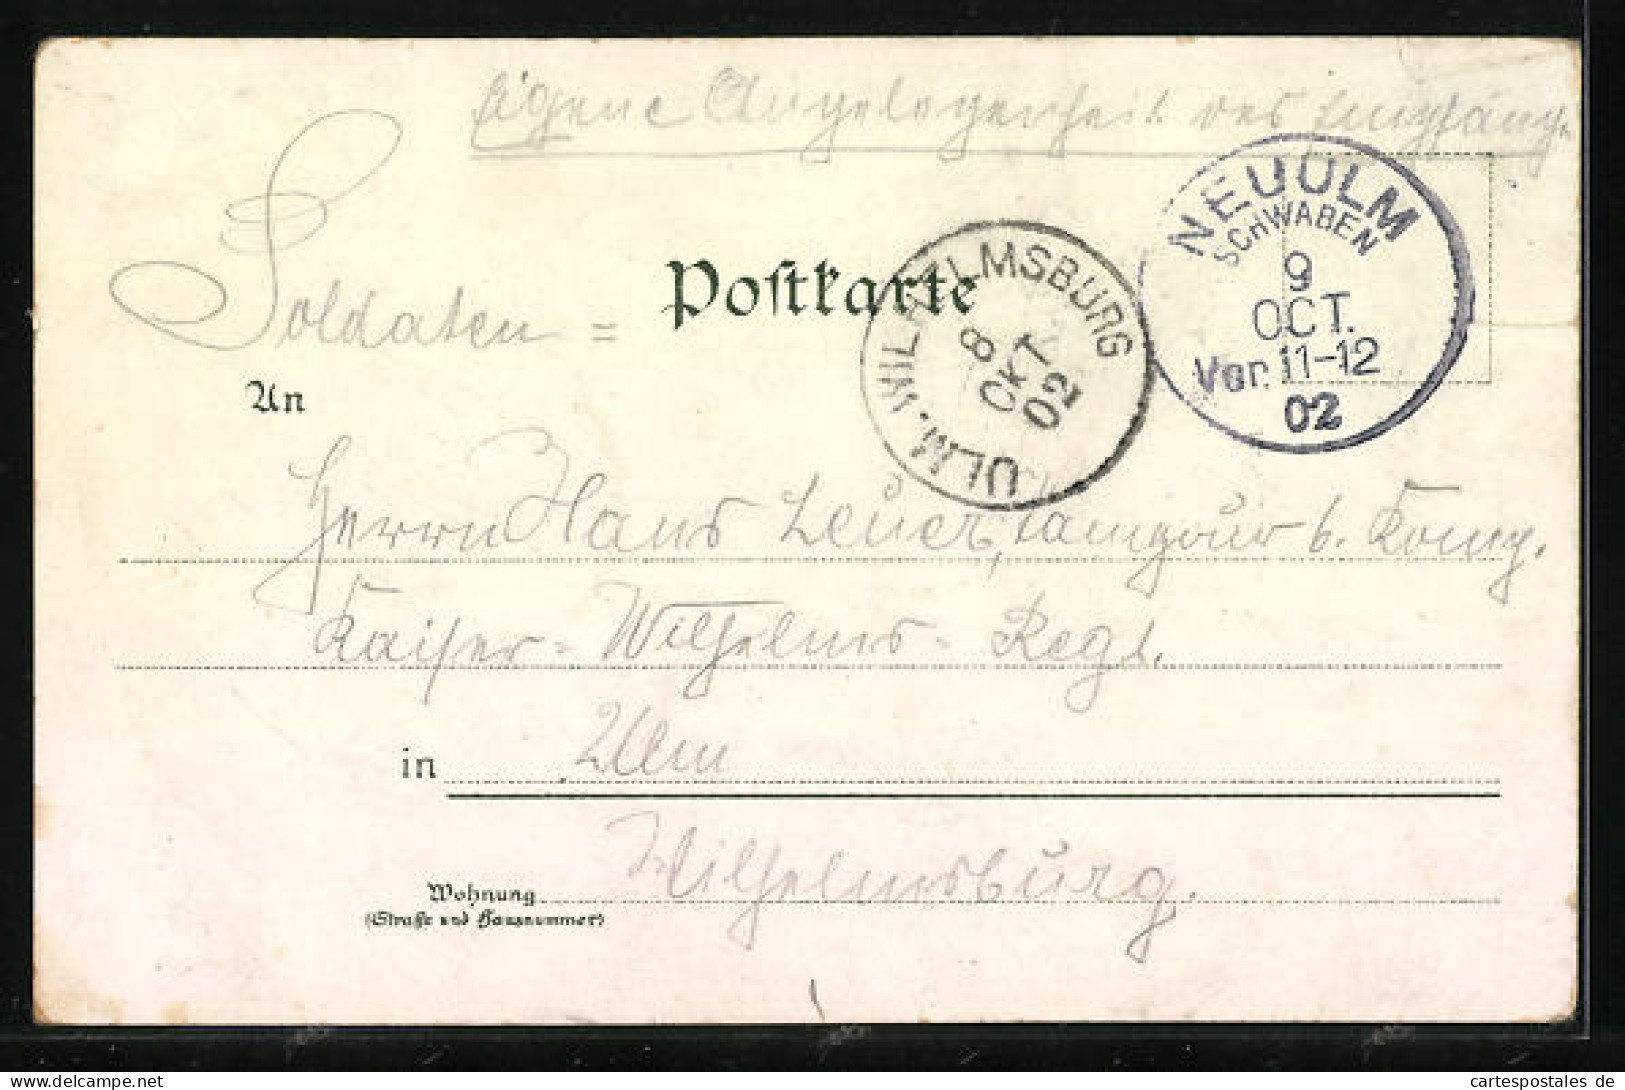 Eigene Angelegenheit des Empfäng.
Soldaten =
Postkarte
NEUULM
SCHWABEN
9
OCT.
Vor. 11-12
02
ULM. WILHELMSBURG
8
OKT
02
An
Herrn Hans Leuer, Tambour b. König.
Kaiser-Wilhelms-Regt.
in Ulm
Wilhelmsburg.
Wohnung
(Straße und Hausnummer)
cartespostales de